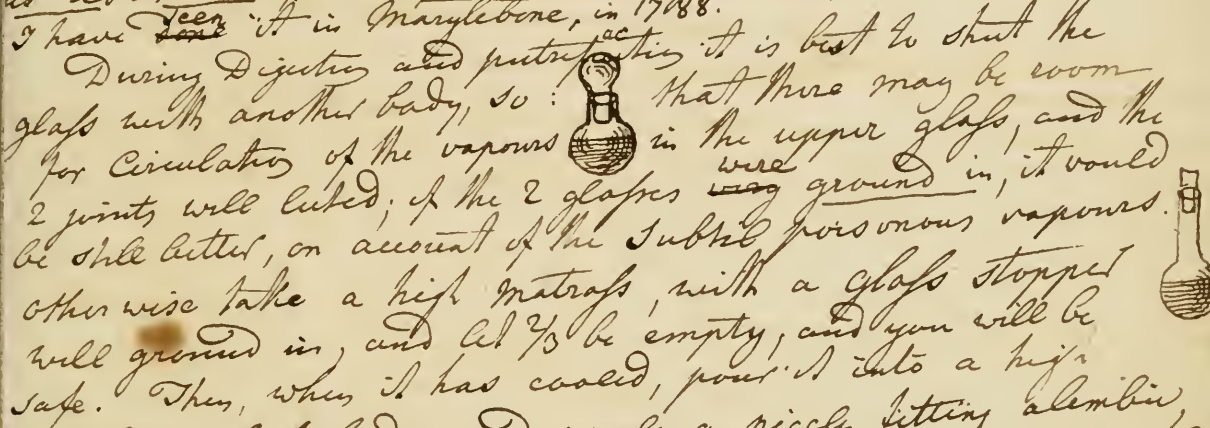 I have seen it in Marylebone, in 1788.
During Digestion and putrefaction it is best to shut the
glass with another body, so: that there may be room
for Circulation of the vapours in the upper glass, and the
2 joints well luted; if the 2 glasses were ground in, it would
be still better, on account of the Subtil poisonous vapours.
otherwise take a high Matrass, with a Glass stopper
well ground in, and let 2/3 be empty, and you will be
safe. Then, when it has cooled, pour it into a high
nicely fitting alembic,